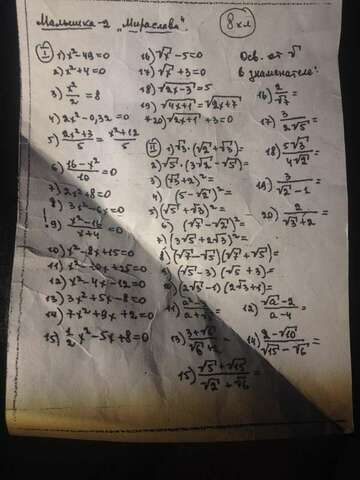 Малышка-2 „Мирослава"
8 кл
I
1) x²-49=0
2) x²+4=0
3) x²/2 = 8
4) 2x²-0,32=0
5) (2x²+3)/5 = (x²+12)/5
6) (16-x²)/10 = 0
7) 2x²+8=0
8) 3x²-6x=0
!9) (x²-16)/(x+4) = 0
10) x²-8x+15=0
11) x²-10x+25=0
12) x²-4x-12=0
13) 3x²+5x-8=0
14) 7x²+9x+2=0
15) 1/2 x²-5x+8=0
16) √x -5=0
17) √x +3=0
18) √(2x-3) =5
19) √(4x+1) = √(2x+7)
*20) √(2x+1) +3=0
II
1) √3·(√2+√3)=
2) √5·(3√2-√5)=
3) (√3+2)²=
4) (5-√2)²=
5) (√5+√3)²=
6) (√7-√2)²=
7) (3√5+2√3)²=
8) (√7-√5)(√7+√5)=
9) (√5-3)(√5+3)=
10) (2√3-1)(2√3+1)=
12) (√a-2)/(a-4) =
15) (√5+√15)/(√2+√6) =
Осв. от √
в знаменателе:
16) 2/√7 =
17) 3/(2√5) =
18) 5√3/(4√2) =
19) 3/(√2-1) =
20) 2/(√3+2) =